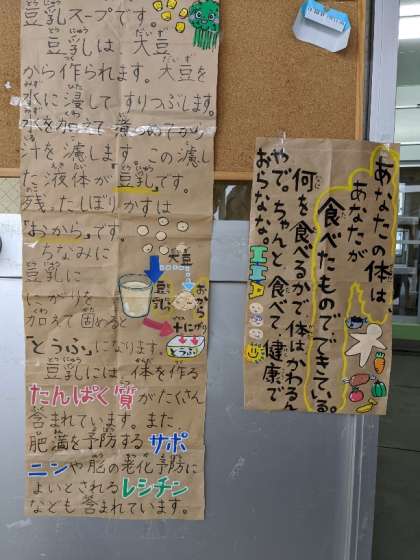 豆乳スープです。
豆乳は 大豆
から作られます。大豆を
水に浸してすりつぶします。
水を加えて 煮つめてから
汁を濾します。この濾し
た液体が"豆乳"です。
残ったしぼりかすは
"おから"です。
ちなみに
豆乳に
にがりを
加えて固めると
"とうふ"になります。
豆乳には、体を作る
たんぱく質がたくさん
含まれています。また、
肥満を予防するサポ
ニンや脳の老化予防に
よいとされるレシチン
なども含まれています。
大豆
豆乳
おから
+にがり
とうふ
あなたの体は
あなたが
食べたものでできている。
何を食べるかで体はかわるん
やで。ちゃんと食べて健康で
おらなな。